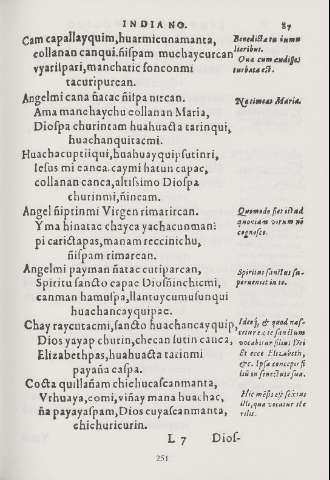 INDIANO. 87
Cam capallayquim, huarmicunamanta,
collanan canqui. ñispam muchaycurcan
vyarilpari, manchatic sonconmi
tacuripurcan.
Benedicta tu in mu
lieribus.
Qua cum audisset
turbata est.
Angelmi cana ñatac ñispa nircan.
Ama manchaychu collanan Maria,
Diospa churintam huahuacta tarinqui,
huachanquitacmi.
Ne timeas Maria.
Huachacuptiiqui, huahuayquip sutinri,
Iesus mi canca. caymi hatun capac,
collanan canca, altissimo Diospa
churinmi, ñincam.
Angel ñiptinmi Virgen rimarircan.
Yma hinatac chayca yachacunman:
pi carictapas, manam reccinichu,
ñispam rimarcan.
Quomodo fiet istud
quoniam virum nõ
cognosco.
Angelmi payman ñatac cutiparcan,
Spiritu sancto capac Diosñinchicmi,
canman hamuspa, llantuycumusunqui
huachancayquipac.
Spiritus sanctus su-
perueniet in te.
Chay raycutacmi, sancto huachancayquip,
Dios yayap churin, checan sutin canca,
Elizabethpas, huahuacta tarinmi
payaña caspa.
Ideoq́, & quod nas-
cetur ex te sanctum
vocabitur filius Dei
Et ecce Elizabeth,
&c. Ipsa concepit fi
liũ in senectute sua.
Cocta quillañam chichucascanmanta,
Vrhuaya, comi, viñay mana huachac,
ña payayaspam, Dios cuyascanmanta,
chichuricurin.
Hic mẽsis est sextus
illi, quæ vocatur ste
rilis.
L 7 Dios-
251